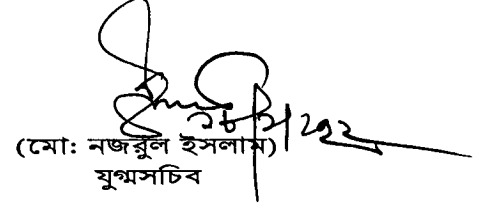 (মো: নজরুল ইসলাম)
যুগ্মসচিব